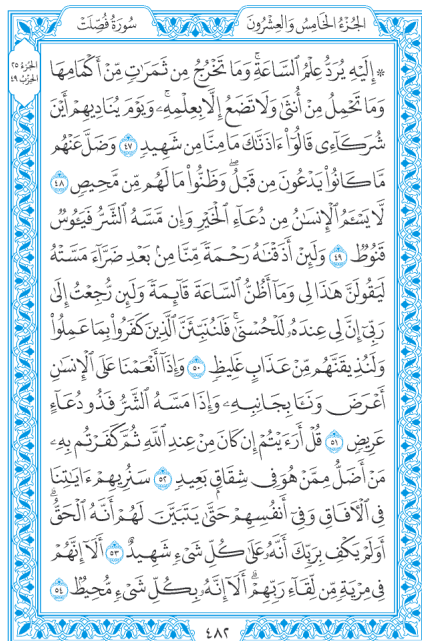 الجُزْءُ الخَامِسُ وَالعِشْرُونَ
سُورَةُ فُصِّلَتْ
الجُزْءُ ٢٥
الحِزْبُ ٤٩
۞ إِلَيْهِ يُرَدُّ عِلْمُ ٱلسَّاعَةِۚ وَمَا تَخْرُجُ مِن ثَمَرَٰتٖ مِّنْ أَكْمَامِهَا
وَمَا تَحْمِلُ مِنْ أُنثَىٰ وَلَا تَضَعُ إِلَّا بِعِلْمِهِۦۚ وَيَوْمَ يُنَادِيهِمْ أَيْنَ
شُرَكَآءِي قَالُوٓاْ ءَاذَنَّٰكَ مَا مِنَّا مِن شَهِيدٖ ٤٧ وَضَلَّ عَنْهُم
مَّا كَانُواْ يَدْعُونَ مِن قَبْلُۖ وَظَنُّواْ مَا لَهُم مِّن مَّحِيصٖ ٤٨
لَّا يَسْـَٔمُ ٱلْإِنسَٰنُ مِن دُعَآءِ ٱلْخَيْرِ وَإِن مَّسَّهُ ٱلشَّرُّ فَيَـُٔوسٞ
قَنُوطٞ ٤٩ وَلَئِنْ أَذَقْنَٰهُ رَحْمَةٗ مِّنَّا مِنۢ بَعْدِ ضَرَّآءَ مَسَّتْهُ
لَيَقُولَنَّ هَٰذَا لِي وَمَآ أَظُنُّ ٱلسَّاعَةَ قَآئِمَةٗ وَلَئِن رُّجِعْتُ إِلَىٰ
رَبِّيٓ إِنَّ لِي عِندَهُۥ لَلْحُسْنَىٰۚ فَلَنُنَبِّئَنَّ ٱلَّذِينَ كَفَرُواْ بِمَا عَمِلُواْ
وَلَنُذِيقَنَّهُم مِّنْ عَذَابٍ غَلِيظٖ ٥٠ وَإِذَآ أَنْعَمْنَا عَلَى ٱلْإِنسَٰنِ
أَعْرَضَ وَنَـَٔا بِجَانِبِهِۦ وَإِذَا مَسَّهُ ٱلشَّرُّ فَذُو دُعَآءٍ
عَرِيضٖ ٥١ قُلْ أَرَءَيْتُمْ إِن كَانَ مِنْ عِندِ ٱللَّهِ ثُمَّ كَفَرْتُم بِهِۦ
مَنْ أَضَلُّ مِمَّنْ هُوَ فِي شِقَاقِۭ بَعِيدٖ ٥٢ سَنُرِيهِمْ ءَايَٰتِنَا
فِي ٱلْأٓفَاقِ وَفِيٓ أَنفُسِهِمْ حَتَّىٰ يَتَبَيَّنَ لَهُمْ أَنَّهُ ٱلْحَقُّۗ
أَوَلَمْ يَكْفِ بِرَبِّكَ أَنَّهُۥ عَلَىٰ كُلِّ شَيْءٖ شَهِيدٌ ٥٣ أَلَآ إِنَّهُمْ
فِي مِرْيَةٖ مِّن لِّقَآءِ رَبِّهِمْۗ أَلَآ إِنَّهُۥ بِكُلِّ شَيْءٖ مُّحِيطُۢ ٥٤
٤٨٢